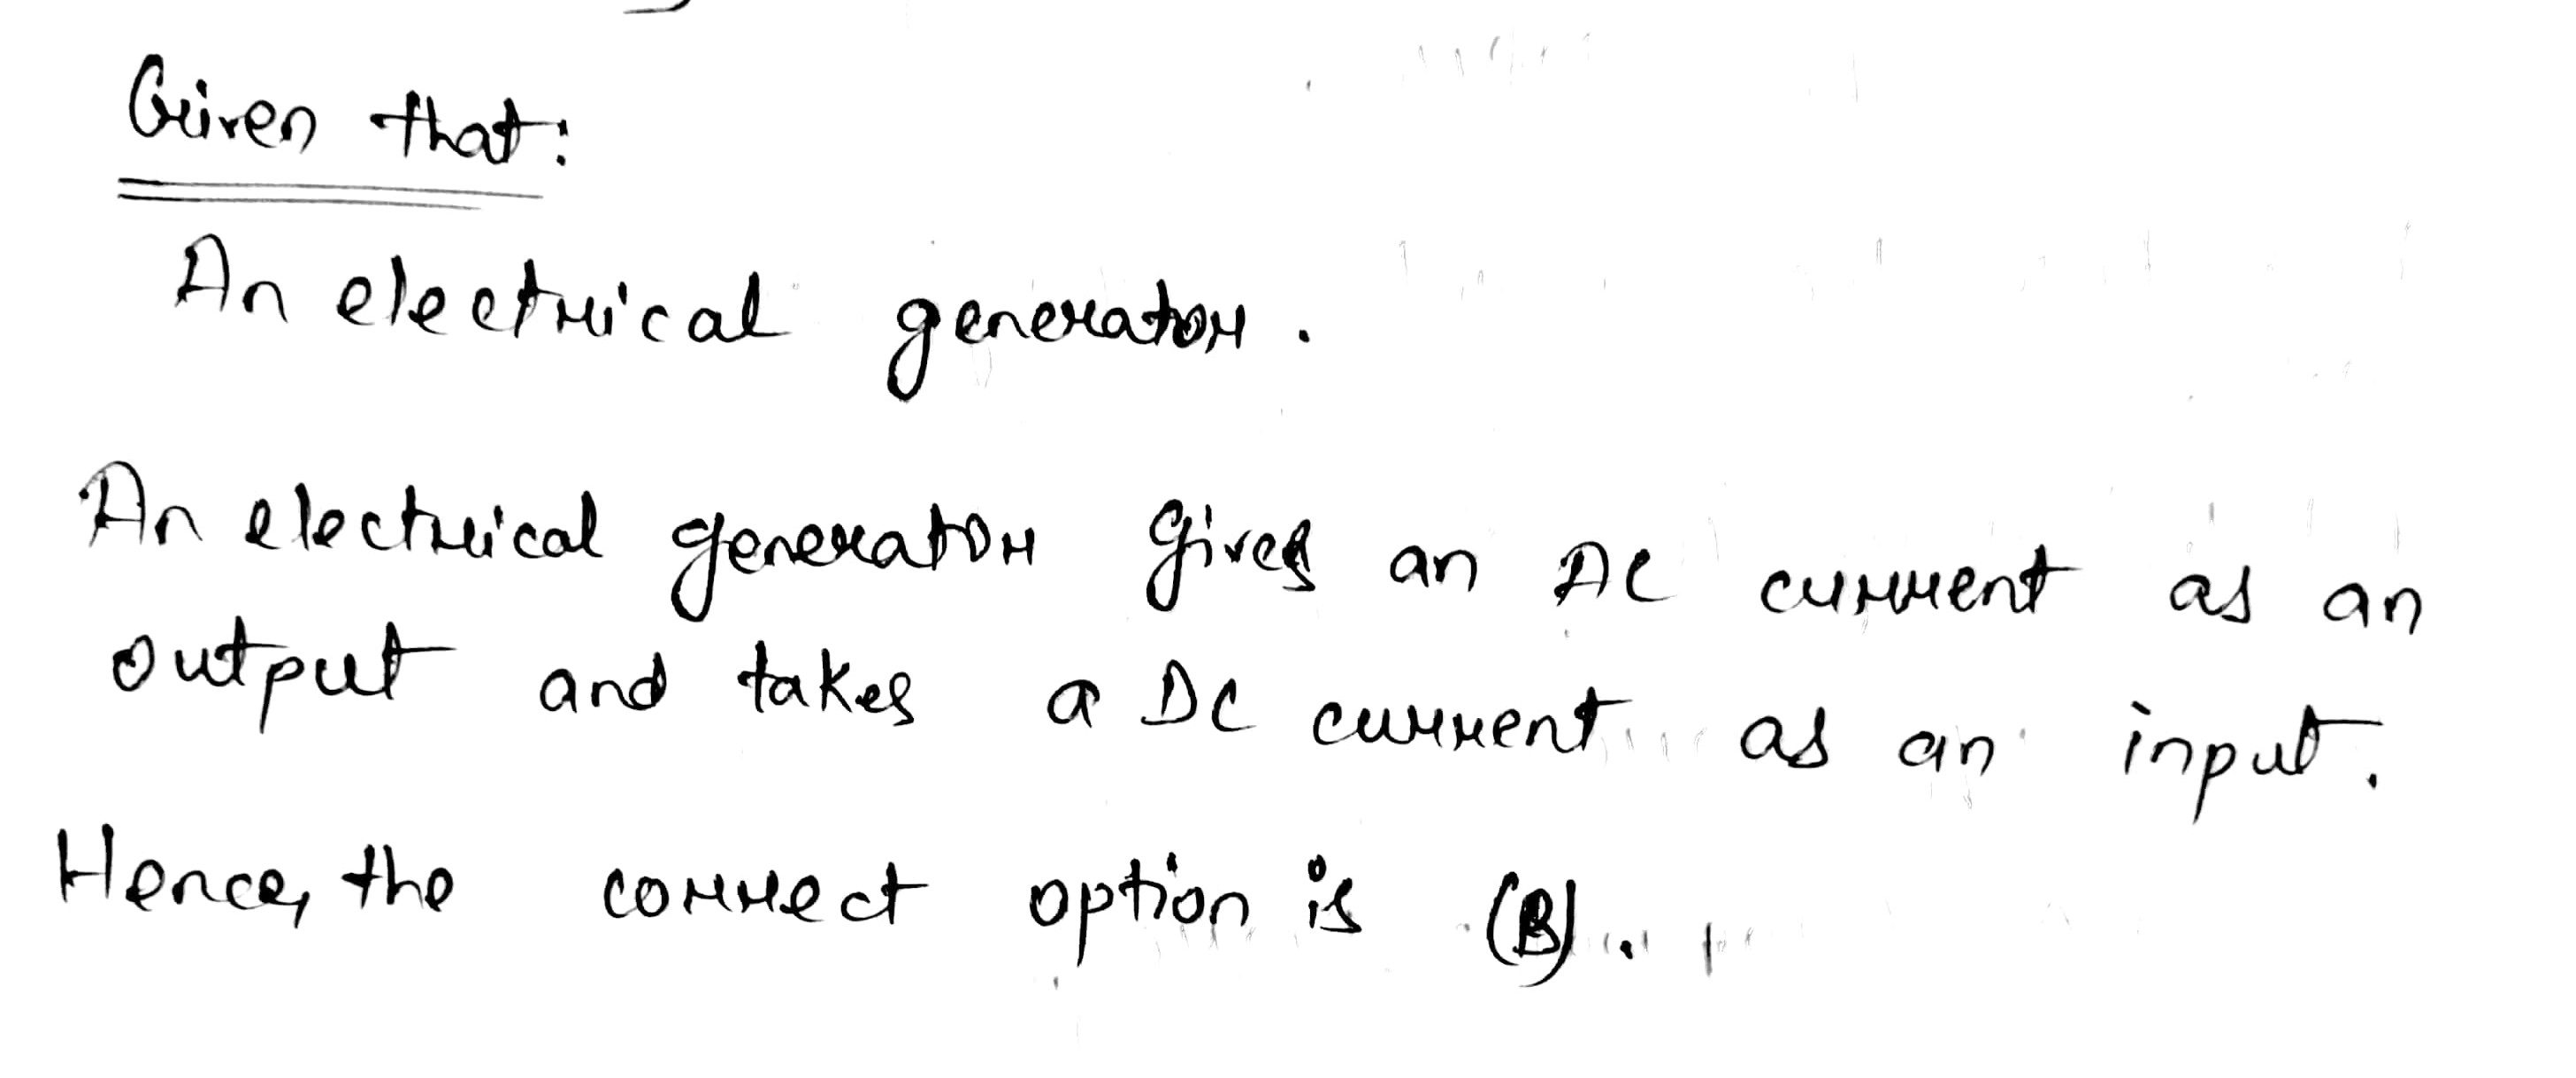 Given that:
An electrical generator.
An electrical generator gives an AC current as an
output and takes a DC current as an input.
Hence, the correct option is (B).